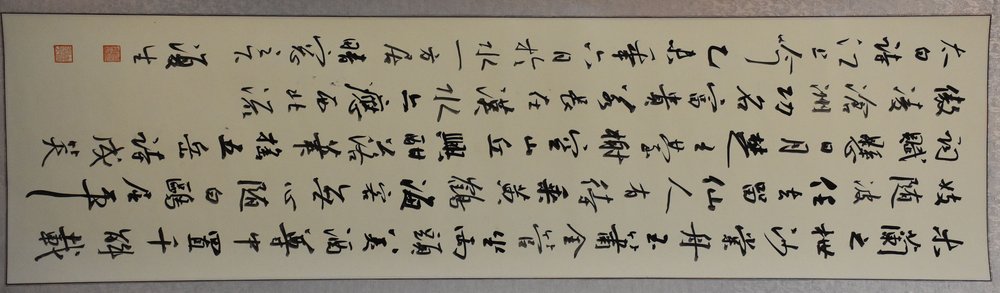 木蘭之枻沙棠舟玉簫金管坐兩頭美酒尊中置千斛載
妓隨波任去留仙人有待乘黃鶴海客無心隨白鷗屈平
詞賦懸日月楚王臺榭空山丘興酣落筆搖五岳詩成笑
傲凌滄洲功名富貴若長在漢水亦應西北流
太白詩江上吟 六月於水一方居晴窗之下